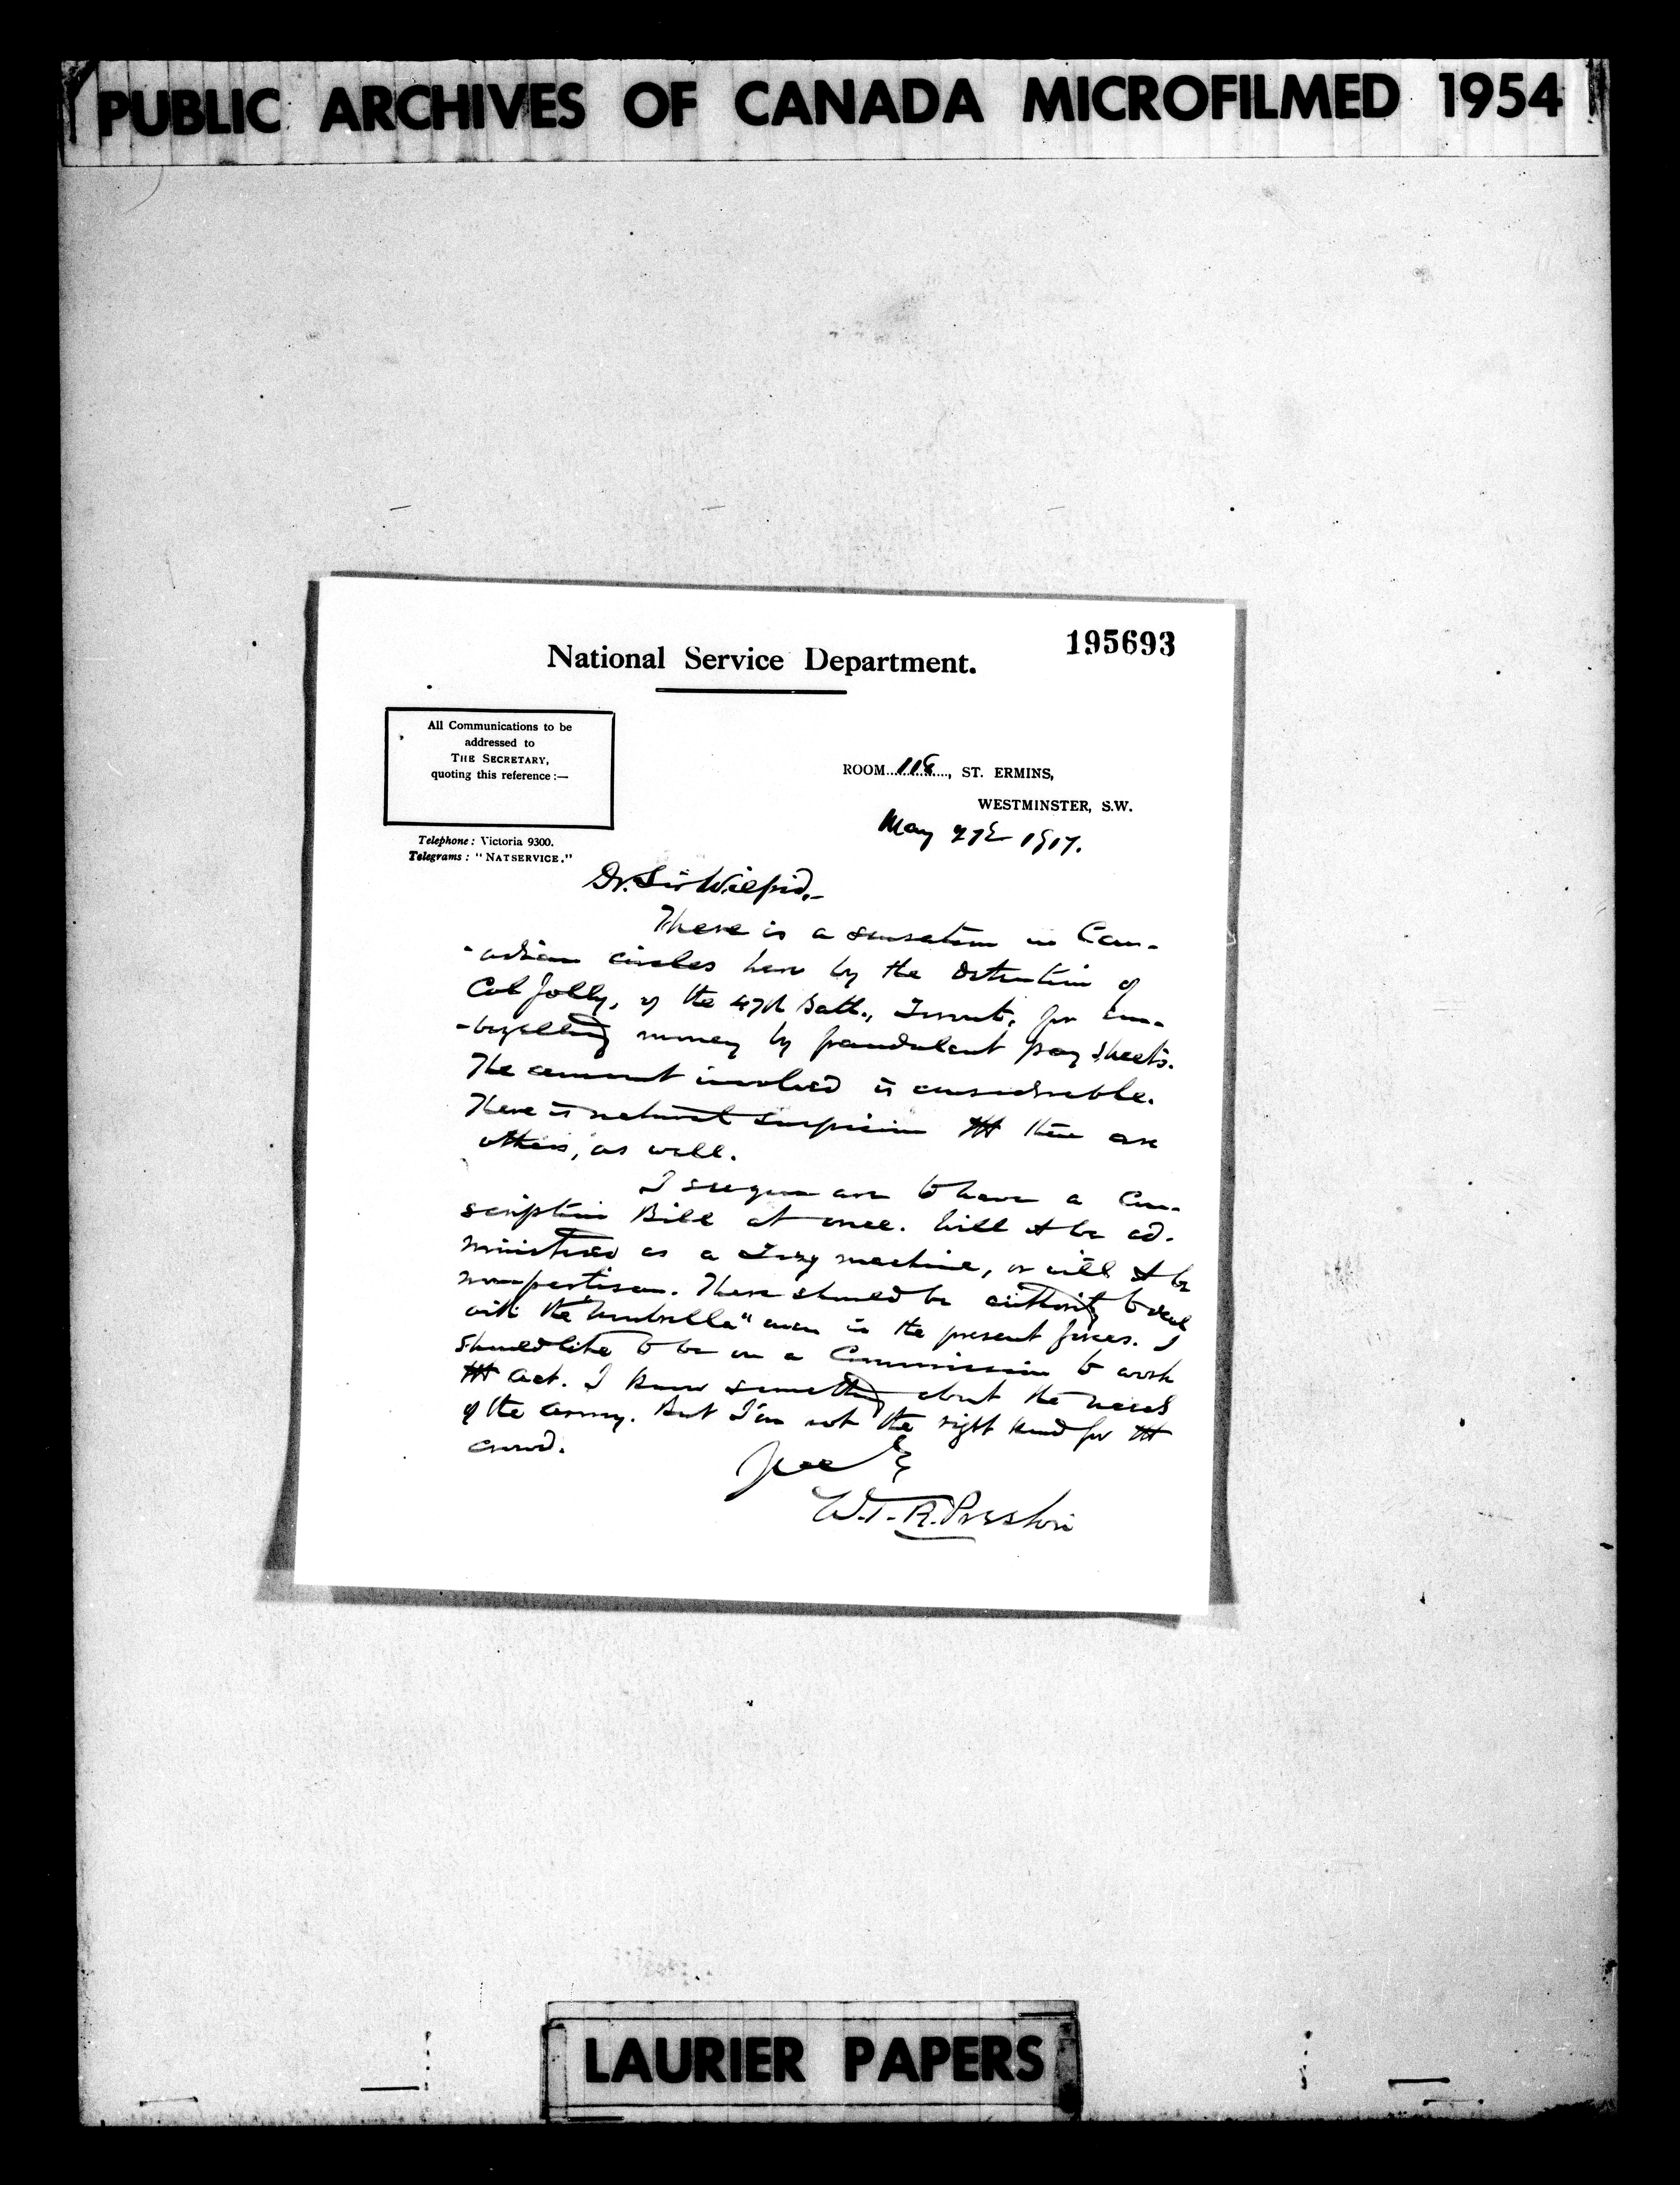 PUBLIC ARCHIVES OF CANADA MICROFILMED 1954
195693
National Service Department.
All Communications to be
addressed to
THE SECRETARY,
quoting this reference:—
ROOM 118, ST. ERMINS,
WESTMINSTER, S.W.
Telephone: Victoria 9300.
Telegrams: "NATSERVICE."
May 27th 1917.
Dr. Sir Wilfrid,—
There is a sensation in Can-
-adian circles here by the detention of
Col Jolly, of the 47th Batt., for em-
-bezelling money by fraudulent pay sheets.
The amount involved is considerable.
There is natural suspicion tht there are
others, as well.
I see you are to have a Con-
scription Bill at once. Will it be ad-
ministered as a Tory machine, or will it be
nonpartisan. There should be authority to deal
with the "Umbrella" men in the present forces. I
should like to be on a Commission to work
tht Act. I know something about the needs
of the army. But I'm not the right kind for tht
crowd.
W.T.R. Preston
LAURIER PAPERS